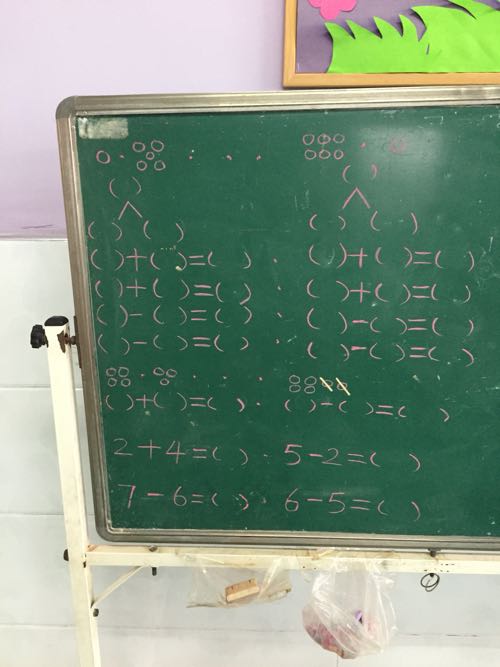 ( ) ( )
( ) ( ) ( ) ( )
( )+( )=( ) ( )+( )=( )
( )+( )=( ) ( )+( )=( )
( )-( )=( ) ( )-( )=( )
( )-( )=( ) ( )-( )=( )
( )+( )=( ) ( )-( )=( )
2+4=( ) 5-2=( )
7-6=( ) 6-5=( )